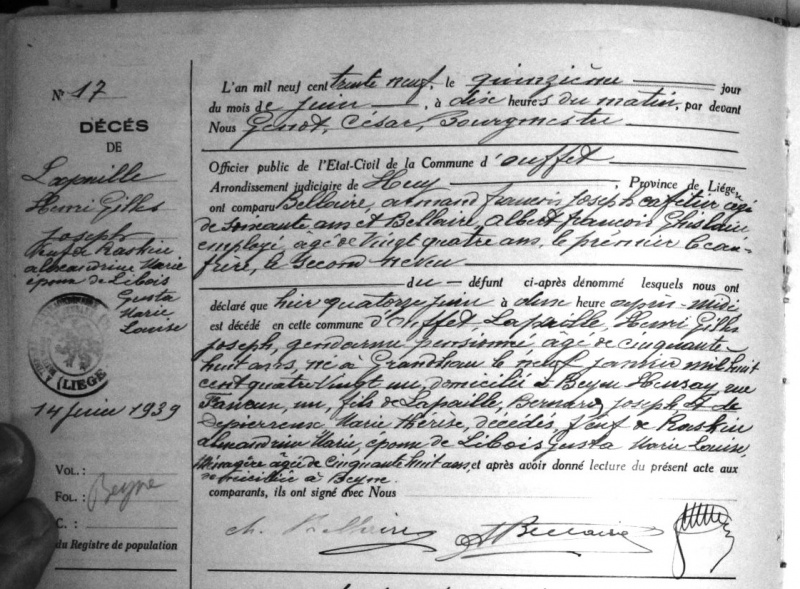 N° 17
DÉCÉS
DE
Lapaille
Henri Gilles
Joseph
Veuf de Raskin
Alexandrine Marie
époux de Libois
Gusta
Marie
Louise
(LIEGE
14 juin 1939
VOL. :
FOL. : Beyne
C. :
du Registre de population
L'an mil neuf cent trente neuf, le quinzième jour
du mois de juin, à dix heures du matin, par devant
Nous Genot, César, Bourgmestre
Officier public de l'Etat-Civil de la Commune d'Ouffet
Arrondissement judiciaire de Huy, Province de Liége,
ont comparu Bellaire, Armand François Joseph cafetier agé
de soixante ans et Bellaire, Albert François Ghislain
employé agé de vingt quatre ans, le premier beau-
frère, le second neveu
du défunt ci-après dénommé lesquels nous ont
déclaré que hier quatorze juin à heure après-midi
est décédé en cette commune d'Ouffet Lapaille, Henri Gilles
Joseph, gendarme pensionné agé de cinquante
huit ans, né à le neuf janvier mil huit
cent quatre vingt un, domicilié à Beyne Heusay, rue
un, fils de Lapaille, Bernard Joseph et de
Depierreux Marie Thérèse, décédés, Veuf de Raskin
Alexandrine Marie, époux de Libois Gusta Marie Louise,
Ménagère âgée de cinquante huit ans, et après avoir donné lecture du présent acte aux
domiciliée à Beyne.
comparants, ils ont signé avec Nous
Bellaire
A Bellaire